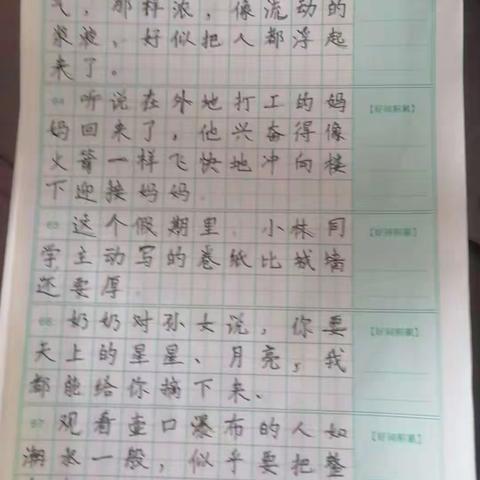 气，那样浓，像流动的
浆液，好似把人都浮起
来了。
64 听说在外地打工的妈
【好词积累】
妈回来了，他兴奋得像
火箭一样飞快地冲向楼
下迎接妈妈.
65 这个假期里.小林同
【好词积累】
学主动写的卷纸比城墙
还要厚.
66 奶奶对孙女说，你要
【好词积累】
天上的星星、月亮，我
都能给你摘下来、
67 观看壶口瀑布的人如
【好词积累】
潮水一般，似乎要把整